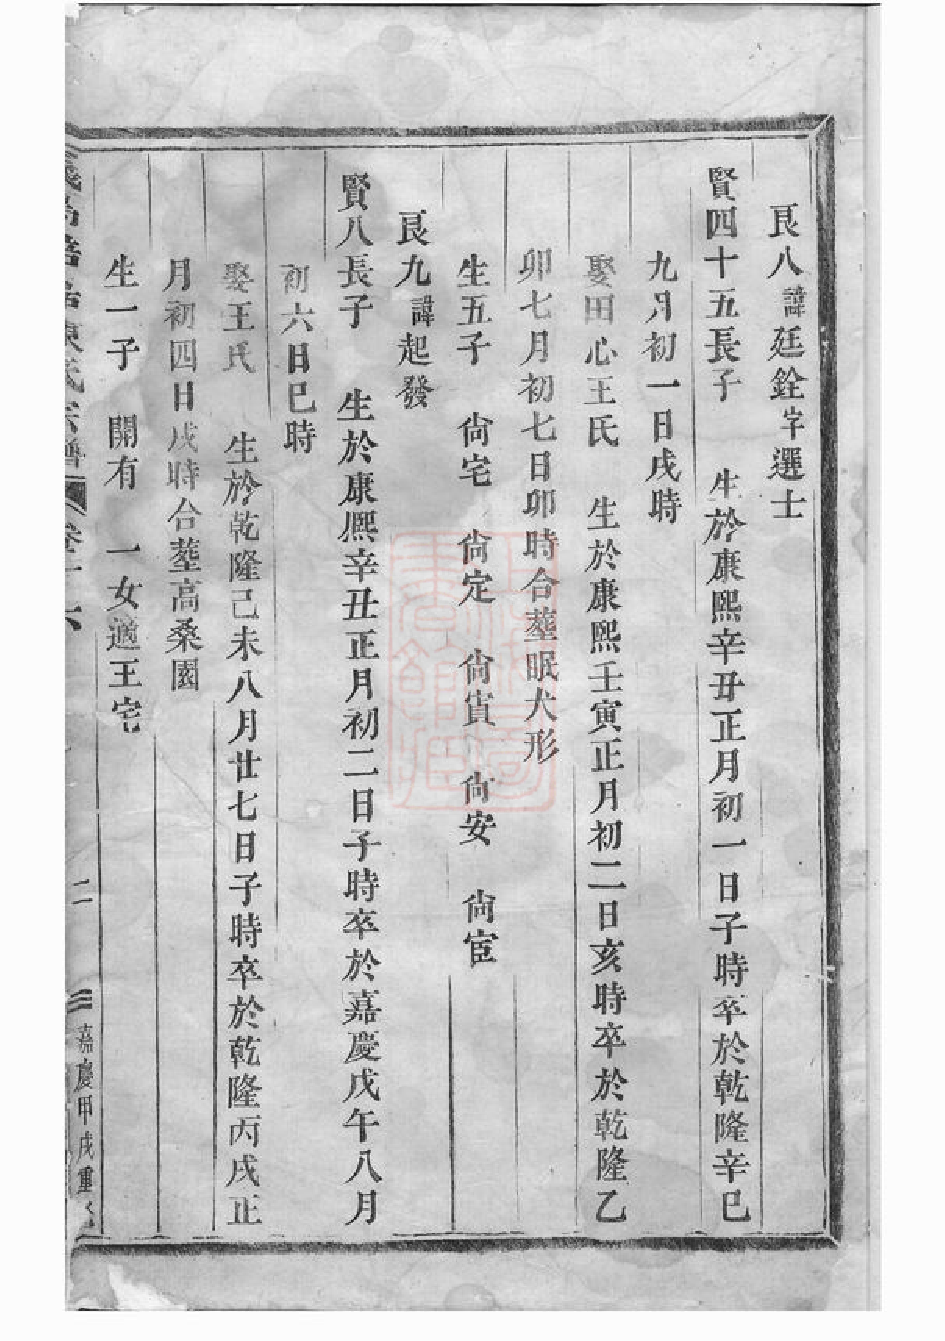 良八諱廷銓字選士
賢四十五長子 生於康熙辛丑正月初一日子時卒於乾隆辛巳
九月初一日戌時
娶田心王氏 生於康熙壬寅正月初二日亥時卒於乾隆乙
卯七月初七日卯時合塟眠犬形
生五子 尙宅 尙定 尙賞 尙安 尙宦
良九諱起發
賢八長子 生於康熙辛丑正月初二日子時卒於嘉慶戊午八月
初六日巳時
娶王氏 生於乾隆己未八月廿七日子時卒於乾隆丙戌正
月初四日戌時合塟高桑園
生一子 開有 一女適王宅
陳氏宗譜
二
嘉慶甲戌重